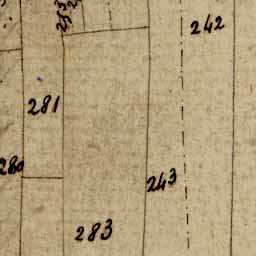 242
281
280
243
283